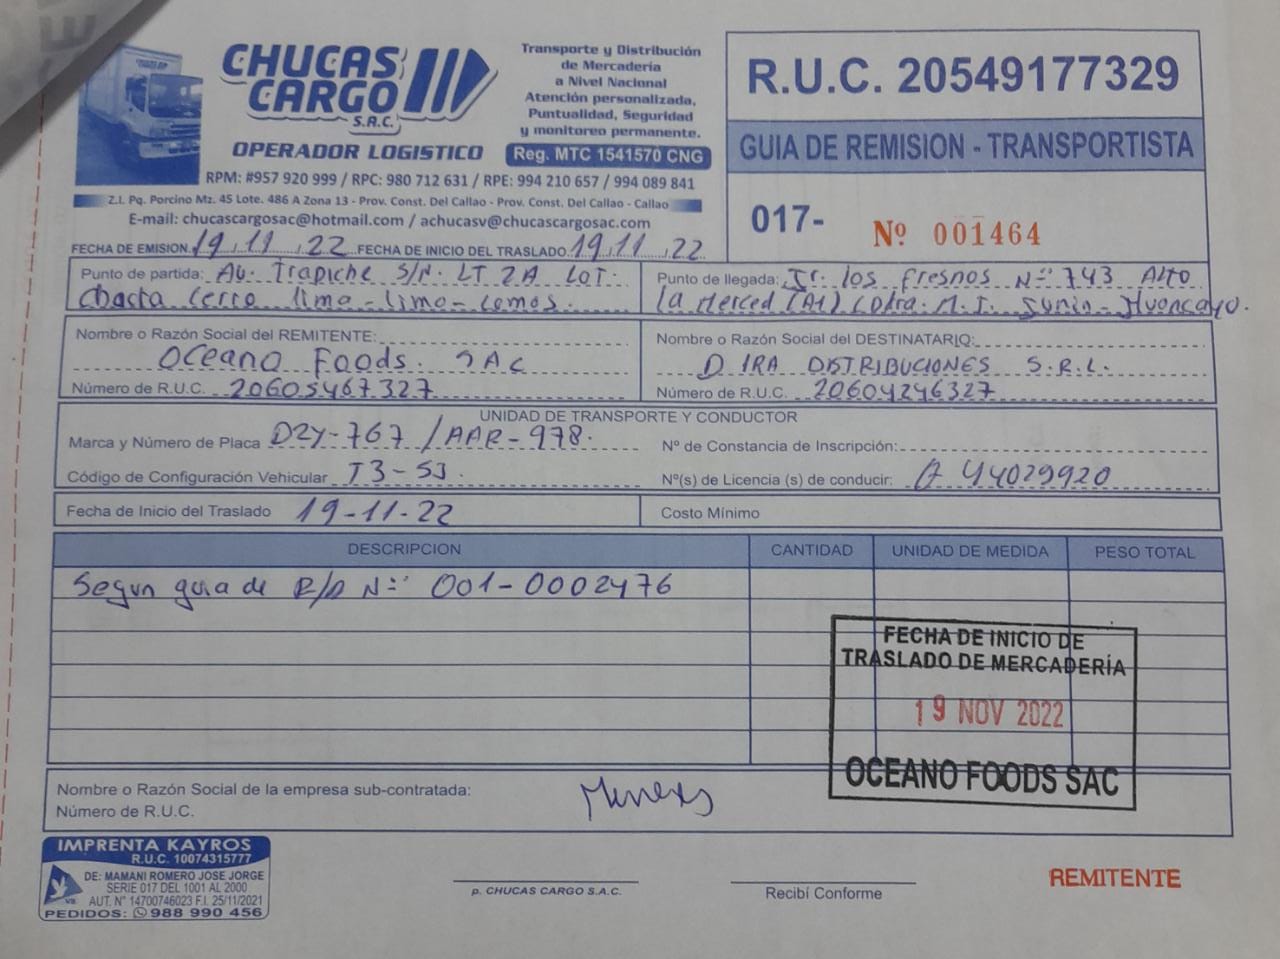 CHUCAS
CARGO
S.A.C.
OPERADOR LOGISTICO
Transporte y Distribución
de Mercadería
a Nivel Nacional
Atención personalizada,
Puntualidad, Seguridad
y monitoreo permanente.
Reg. MTC 1541570 CNG
RPM: #957 920 999 / RPC: 980 712 631 / RPE: 994 210 657 / 994 089 841
Z.I. Pq. Porcino Mz. 45 Lote. 486 A Zona 13 - Prov. Const. Del Callao - Prov. Const. Del Callao - Callao
E-mail: chucascargosac@hotmail.com / achucasv@chucascargosac.com
R.U.C. 20549177329
GUIA DE REMISION - TRANSPORTISTA
017- Nº 001464
FECHA DE EMISION 19 11 22 FECHA DE INICIO DEL TRASLADO 19 11 22
Punto de partida: Av. Trapiche S/N. LT 2A LOT.
Chacta Cerro lima-lima-comas.
Punto de llegada: Jr. los fresnos N° 743 Alto
la Merced (A1) Cdra. M.I. Junin-Huancayo.
Nombre o Razón Social del REMITENTE:
Oceano Foods. SAC
Número de R.U.C. 20605467327
Nombre o Razón Social del DESTINATARIO:
D IRA DISTRIBUCIONES S.R.L.
Número de R.U.C. 20604246327
UNIDAD DE TRANSPORTE Y CONDUCTOR
Marca y Número de Placa D2Y-767 / AAR-978.
Nº de Constancia de Inscripción:
Código de Configuración Vehicular T3-S3.
Nº(s) de Licencia (s) de conducir: Q 44029920
Fecha de Inicio del Traslado 19-11-22
Costo Mínimo
DESCRIPCION CANTIDAD UNIDAD DE MEDIDA PESO TOTAL
Segun guia de R/A N° 001-0002476
FECHA DE INICIO DE
TRASLADO DE MERCADERÍA
19 NOV 2022
OCEANO FOODS SAC
Nombre o Razón Social de la empresa sub-contratada:
Número de R.U.C.
IMPRENTA KAYROS
R.U.C. 10074315777
DE: MAMANI ROMERO JOSE JORGE
SERIE 017 DEL 1001 AL 2000
AUT. N° 14700746023 F.I. 25/11/2021
PEDIDOS: 988 990 456
p. CHUCAS CARGO S.A.C.
Recibí Conforme
REMITENTE